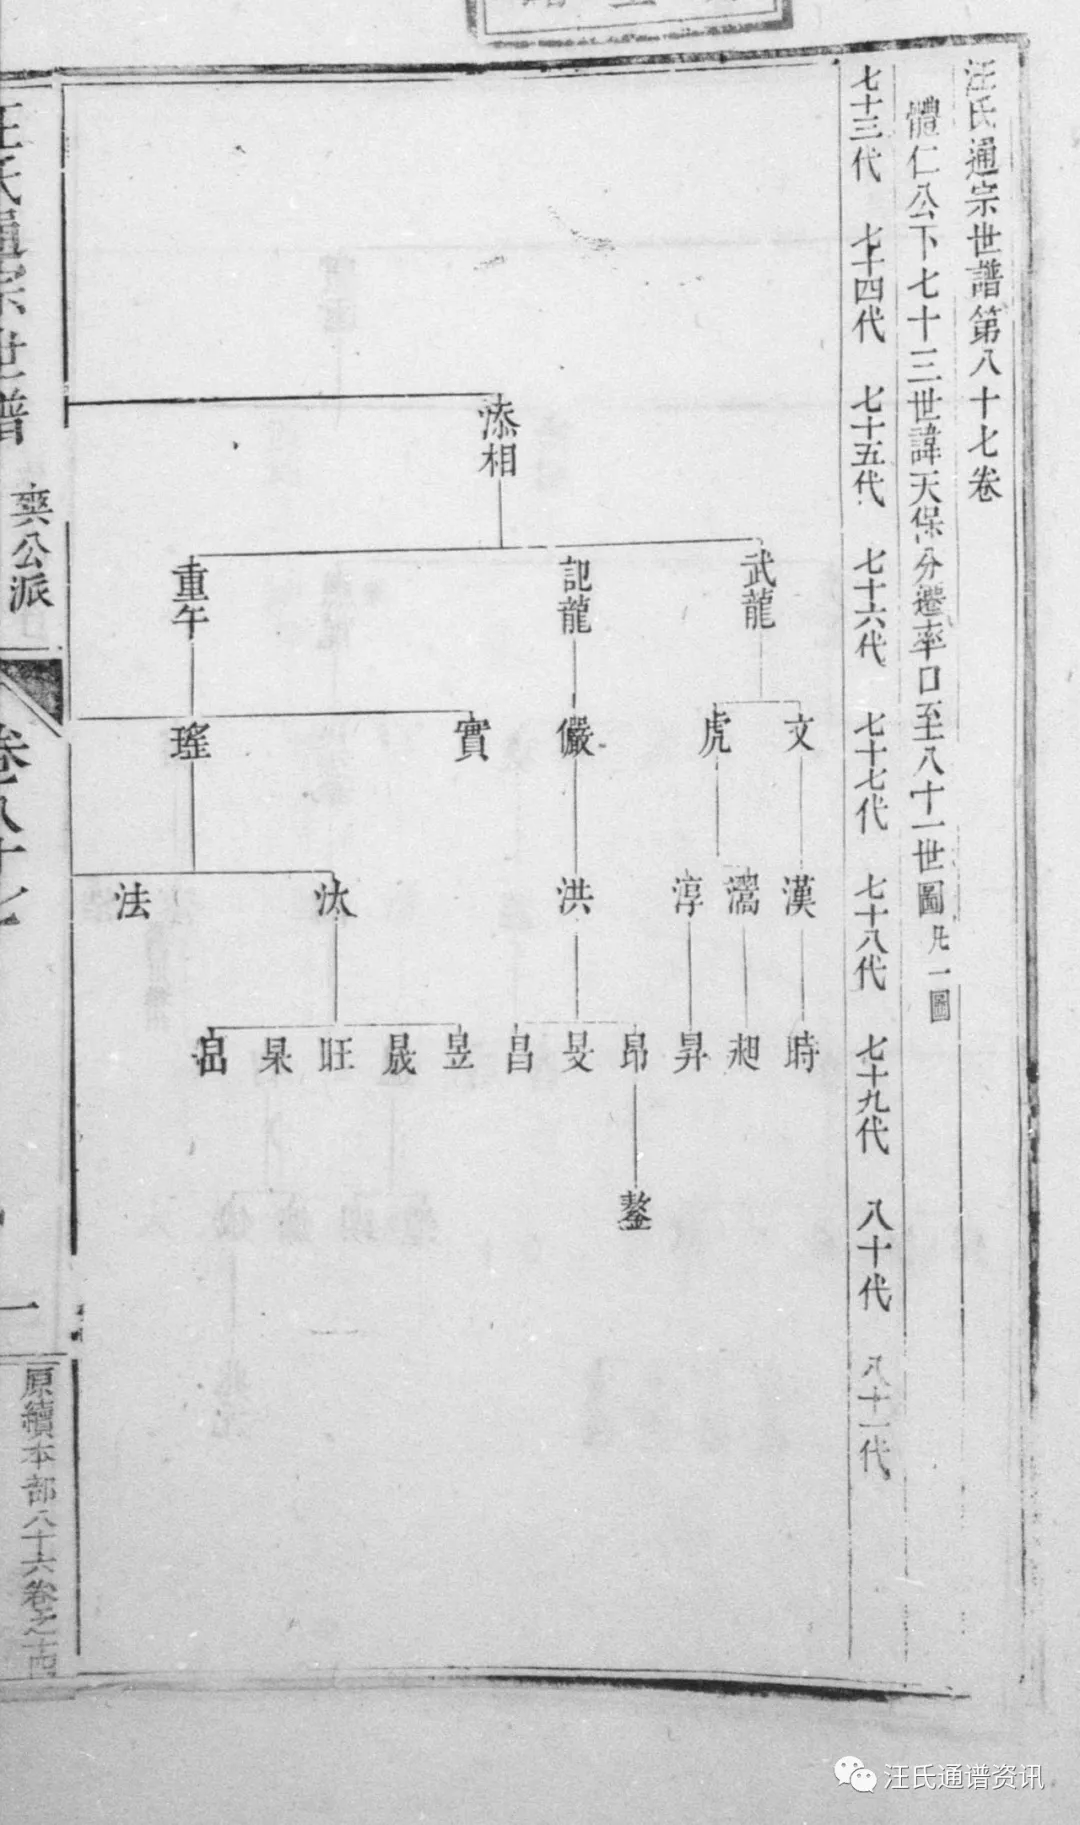 汪氏通宗世譜第八十七卷
體仁公下七十三世諱天保分遷率口至八十一世圖凡一圖
七十三代 七十四代 七十五代 七十六代 七十七代 七十八代 七十九代 八十代 八十一代
添相
武龍 記龍 重午
文 虎 儼 實 瑤
漢 濡 淳 洪 汰 法
時 昶 昇 昂 旻 昌 昱 晟 旺 杲
鏊
汪氏通宗世譜
爽公派
卷八十七
一
原續本部八十六卷之十四
汪氏通谱资讯